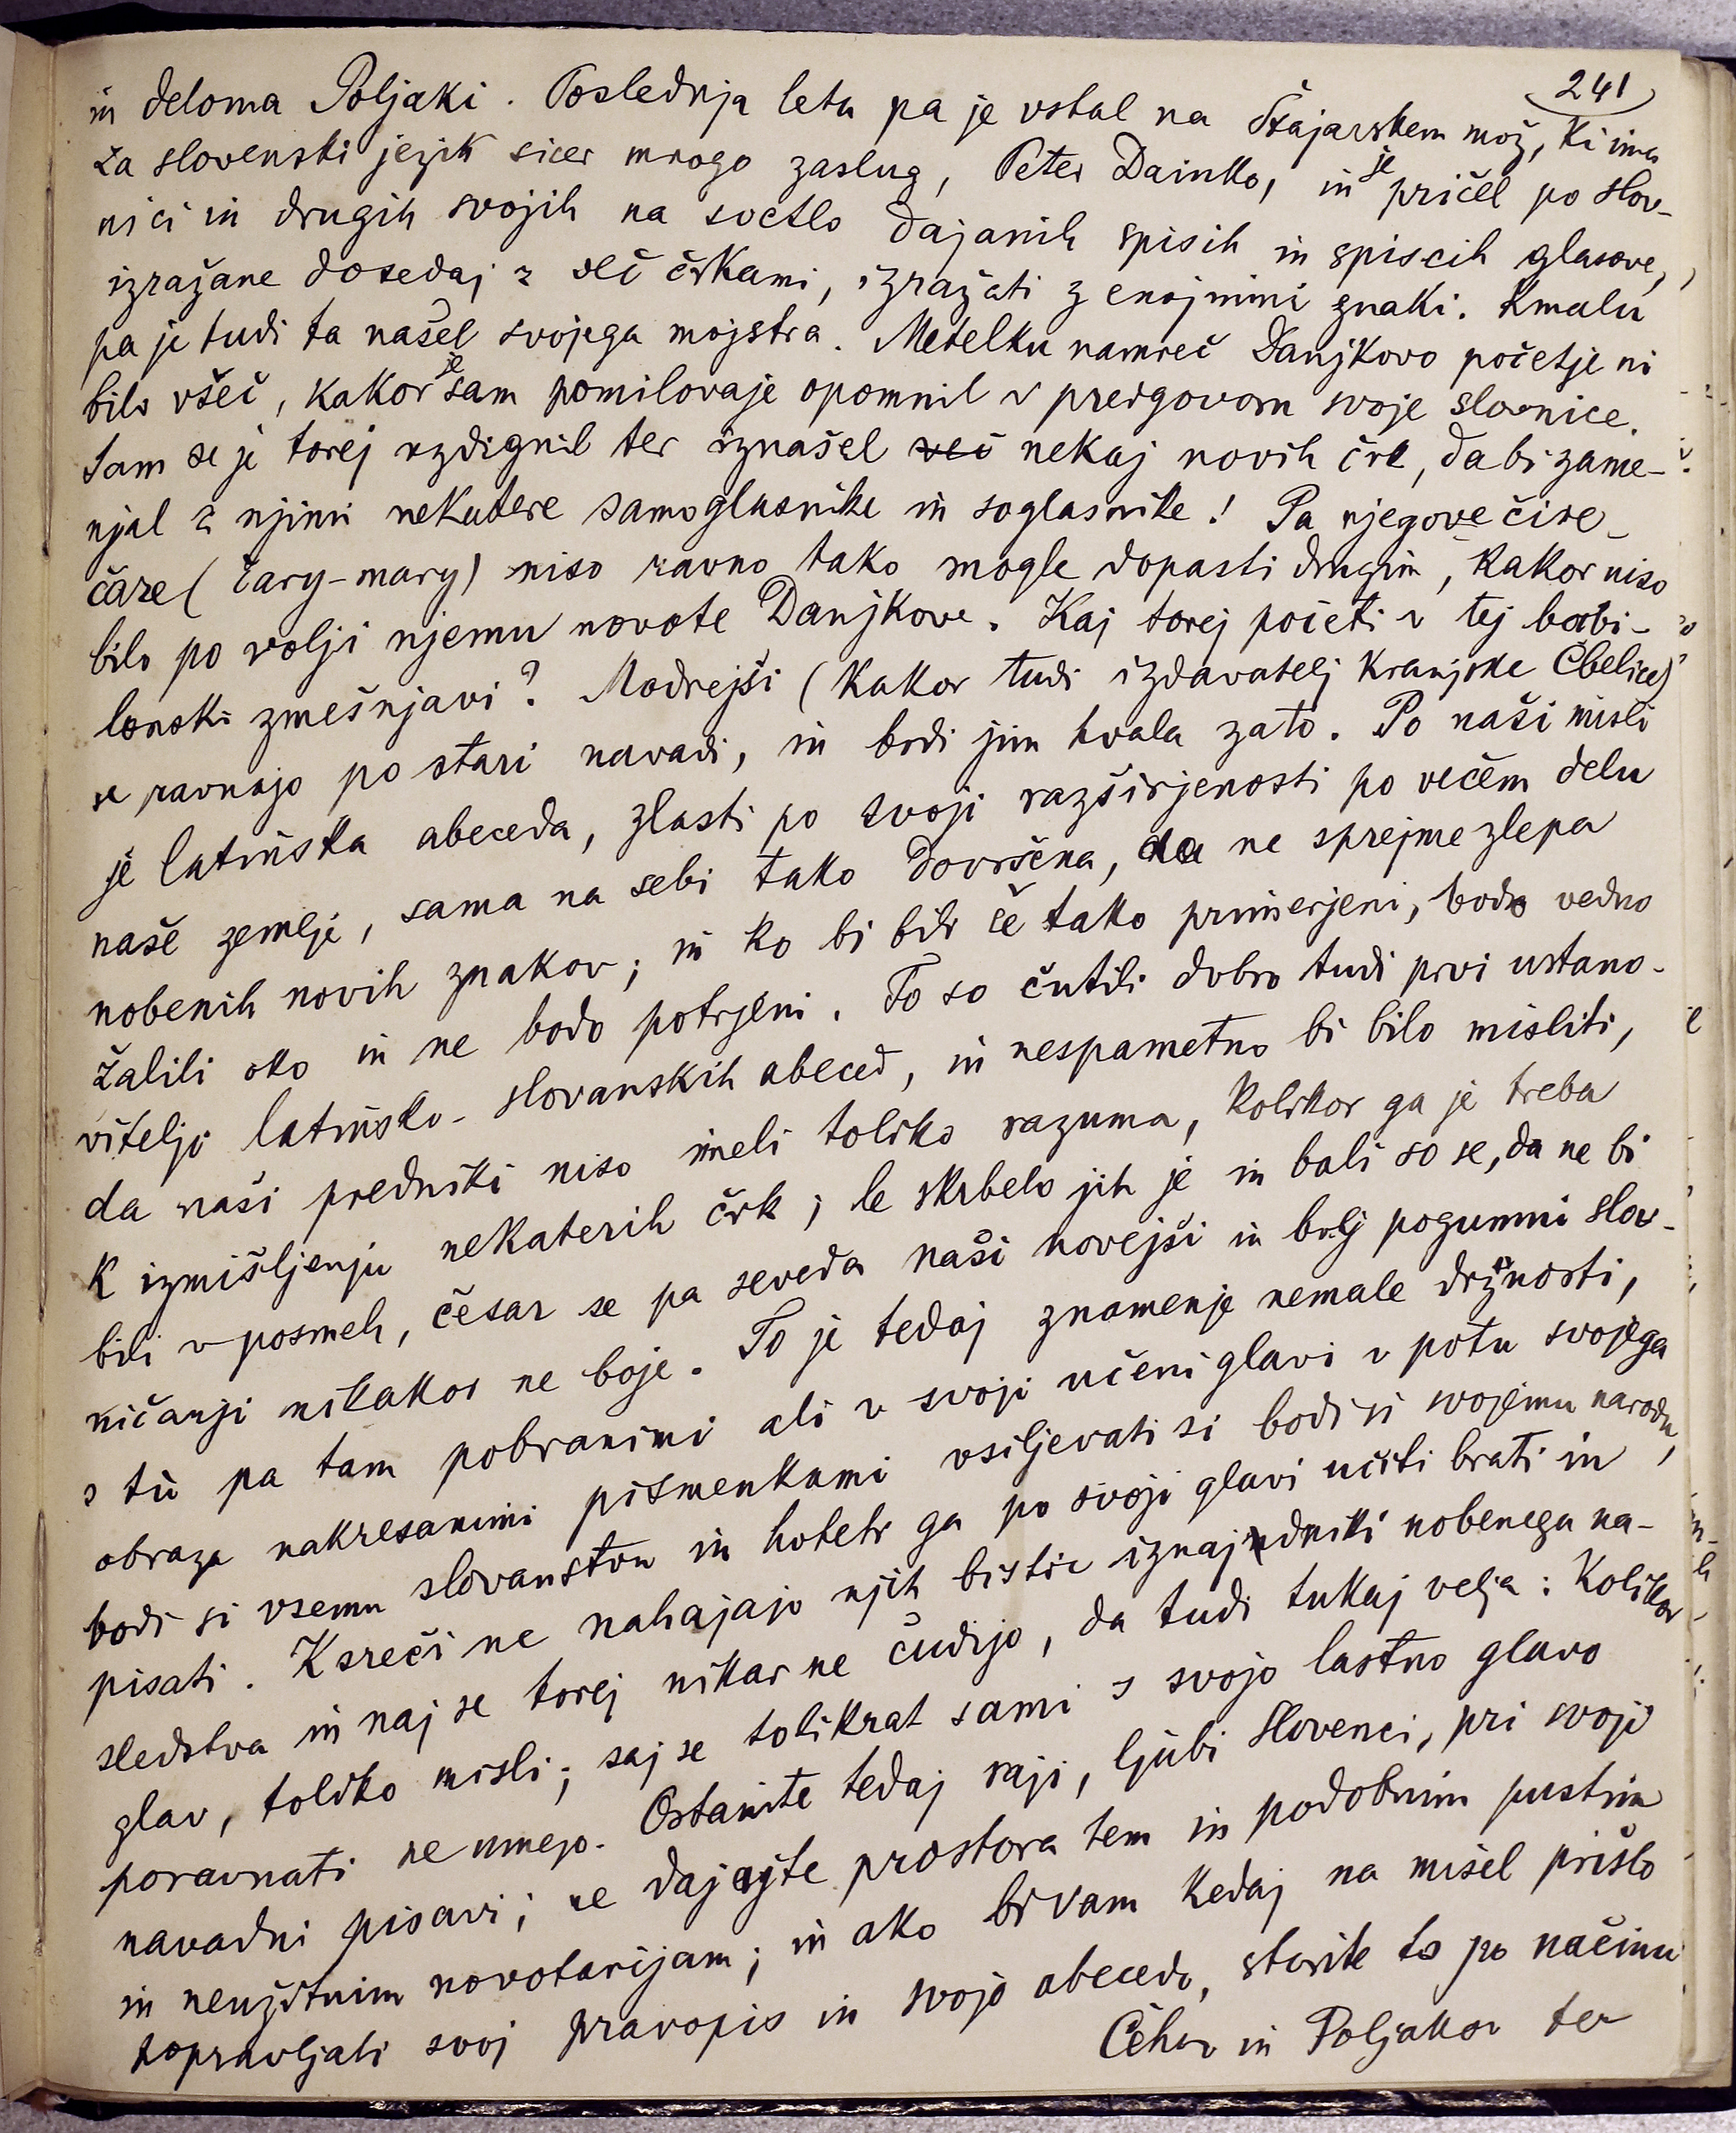 241
in deloma Poljaki. Poslednja leta pa je vstal na Štajarskem mož, ki ima
za slovenski jezik sicer mnogo zaslug, Peter Dainko, in je pričel po slov-
nici in drugih svojih na svetlo dajanih spisih in spiscih glasove,
izražane dosedaj z več črkami, izražati z enojnimi znaki. Kmalu
pa je tudi ta našel svojega mojstra. Metelku namreč Danjkovo početje ni
bilo všeč, kakor je sam pomilovaje opomnil v predgovoru svoje slovnice.
Sam se je torej vzdignil ter iznašel več nekaj novih črk, da bi zame-
njal z njimi nekatere samoglasnike in soglasnike! Pa njegove čire-
čare (čary-mary) niso ravno tako mogle dopasti drugim, kakor niso
bilo po volji njemu novote Danjkove. Kaj torej početi v tej babi-
lonski zmešnjavi? Modrejši (kakor tudi izdavatelj Kranjske Čbelice)
se ravnajo po stari navadi, in bodi jim hvala zato. Po naši misli
je latinska abeceda, zlasti po svoji razširjenosti po večem delu
naše zemlje, sama na sebi tako dovršena, da ne sprejme zlepa
nobenih novih znakov; in ko bi bili še tako primerjeni, bodo vedno
žalili oko in ne bodo potrjeni. To so čutili dobro tudi prvi ustano-
vitelji latinsko-slovanskih abeced, in nespametno bi bilo misliti,
da naši predniki niso imeli toliko razuma, kolikor ga je treba
k izmišljenju nekaterih črk; le skrbelo jih je in bali so se, da ne bi
bili v posmeh, česar se pa seveda naši novejši in bolj pogumni slov-
ničarji nikakor ne boje. To je tedaj znamenje nemale drznosti,
s tù pa tam pobranimi ali v svoji učeni glavi v potu svojega
obraza nakresanimi pismenkami vsiljevati si bodi si svojemu narodu,
bodi si vsemu slovanstvu in hoteti ga po svoji glavi učiti brati in
pisati. K sreči ne nahajajo njih bistri iznajdniki nobenega na-
sledstva in naj se torej nikar ne čudijo, da tudi tukaj velja: Kolikor
glav, toliko misli; saj se tolikrat sami s svojo lastno glavo
poravnati ne umejo. Ostanite tedaj raji, ljubi Slovenci, pri svoji
navadni pisavi; ne dajajte prostora tem in podobnim pustim
in neužitnim novotarijam; in ako bi vam kedaj na misel prišlo
popravljati svoj pravopis in svojo abecedo, storite to po načinu
Čehov in Poljakov ter